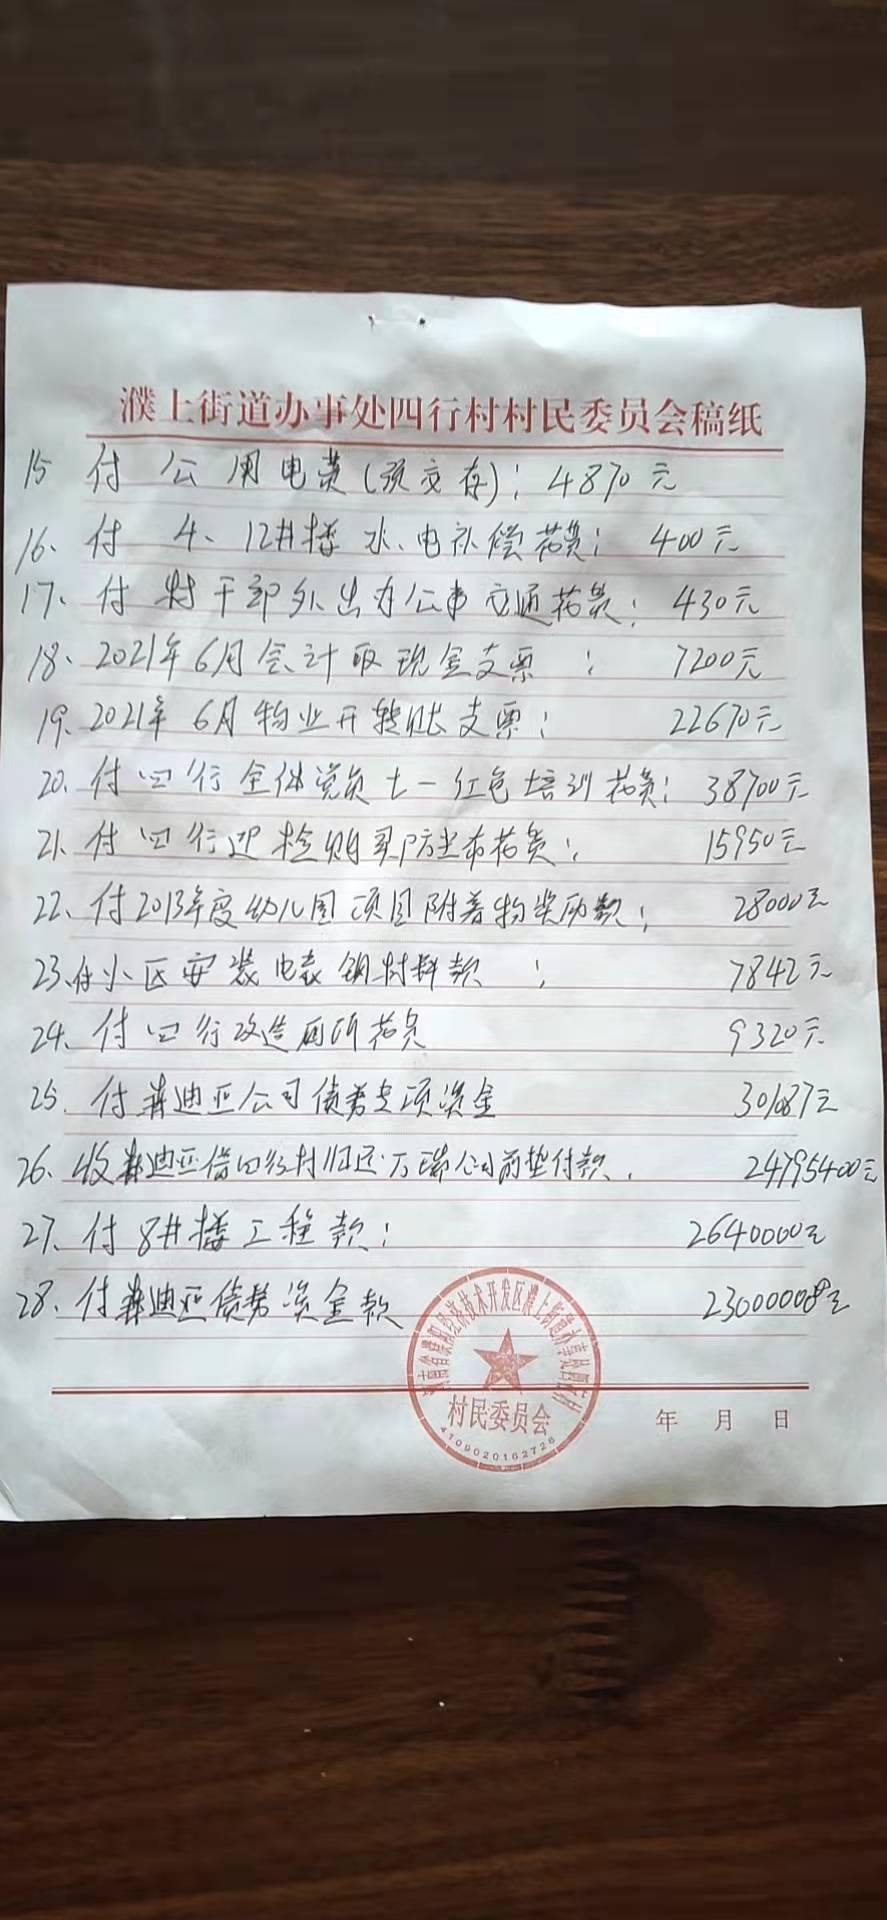 濮上街道办事处四行村村民委员会稿纸
15 付公用电费(预交存): 4870元
16、付 4、12#楼水、电补偿花费: 400元
17、付村干部外出办公事交通花费: 430元
18、2021年6月会计取现金支票: 7200元
19、2021年6月物业开转账支票: 22670元
20、付四行全体党员七一红色培训花费: 38700元
21、付四行迎检购买防尘布花费: 15950元
22、付2013年度幼儿园项目附着物奖励款: 28000元
23、付小区安装电表钢材料款: 7842元
24、付四行改造厕所花费 9320元
25、付森迪亚公司债务专项资金 301087元
26、收森迪亚借四行村归还万瑞公司前垫付款. 24795400元
27、付8#楼工程款: 2640000元
28、付森迪亚债务资金款 元
经济技术开发区濮上街道办事处四行村
村民委员会
4109020162726
年 月 日